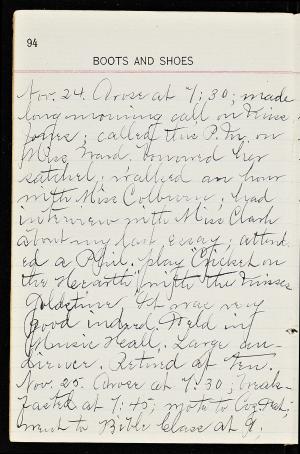 94
BOOTS AND SHOES
Nov. 24. Arose at 7:30; made
long morning call on Miss
Jones; called this P.M. on
Miss Ward. Borrowed her
satchel; walked an hour
with Miss Colburn; had
interview with Miss Clark
about my last essay; attend-
ed a Phil. play "Cricket on
the Hearth" with the Misses
Goldstine. It was very
good indeed. Held in
Music Hall. Large au-
dience. Retired at ten.
Nov. 25. Arose at 7:30; break-
fasted at 7:45; note to
went to Bible Class at 9;